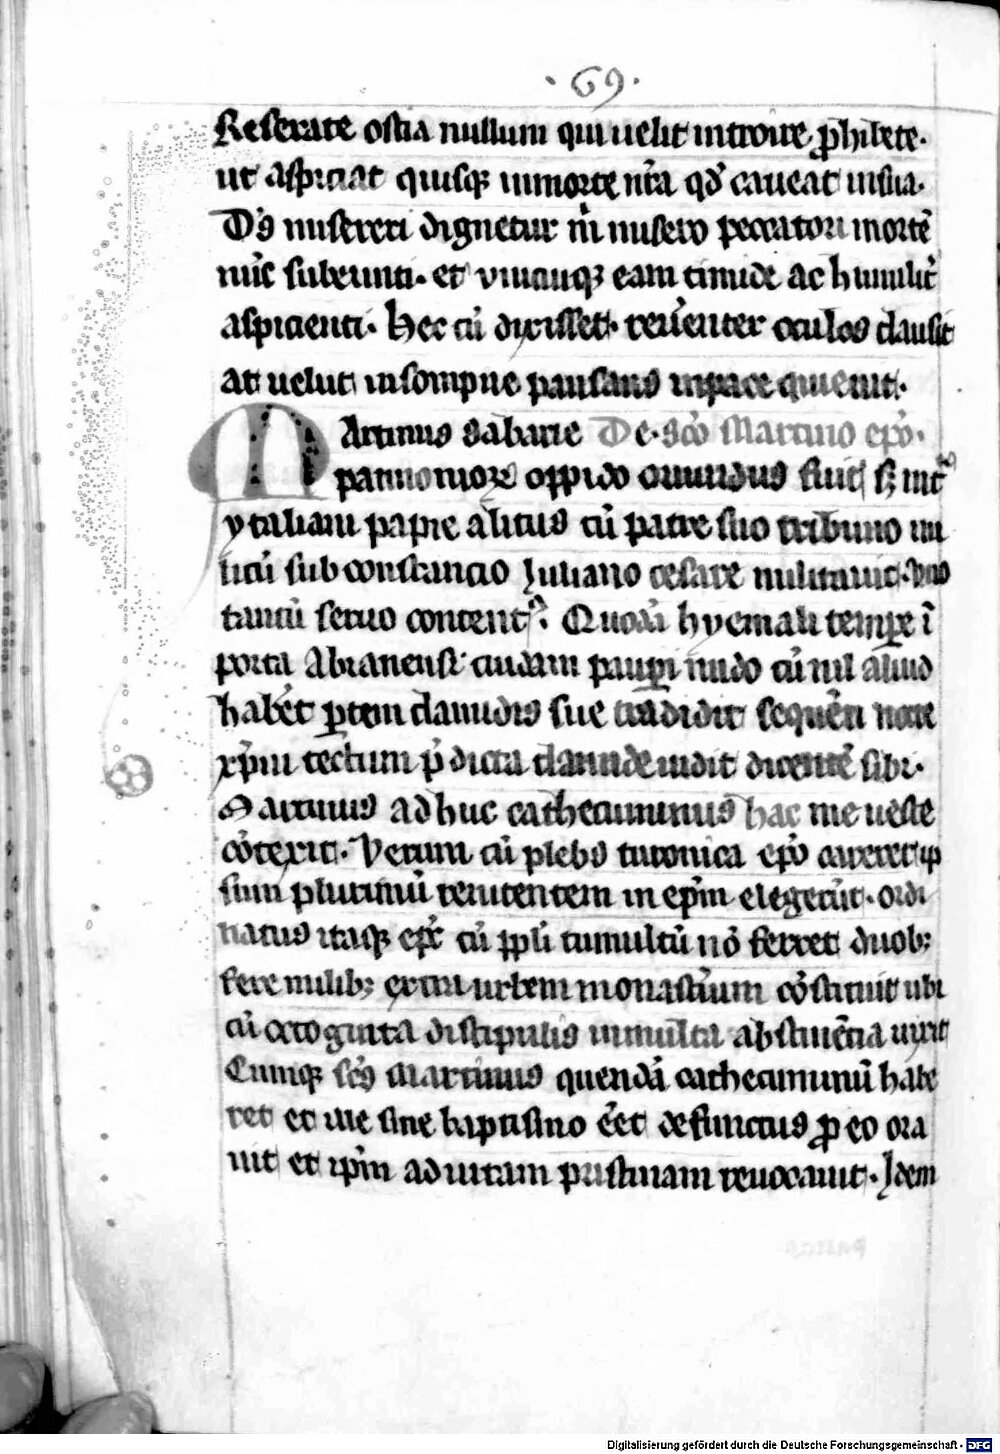 ·69·
Reserate ostia nullum qui uelit introire ꝓhibete·
ut aspiciat quisqꝫ in morte nr̄a qd̓ caueat in sua·
Ds̓ misereri dignetur m̓ misero peccatori mortē
nūc subeunti· et vnicuiqꝫ eam timide ac humilit̓
aspicienti· Hec cū dixisset· reuēenter oculos clausit
at uelut in sompne pausans in pace quieuit·
Martinus Sabarie De sc̄o Martino ep̄o·
pannoniorꝫ oppido oriundus fuit sꝫ int̓
ytaliam papie alitus cū patre suo tribuno mi
litū sub constancio Juliano cesare militauit· vno
tantū seruo content᷒· Quodā hyemali temꝑe ī
porta Abianensi cuidam pauꝑi nudo cū nil aliud
habēt ꝑtem clamidis sue tradidit sequēti nocte
xp̄m tectum p̄dicta clamide uidit dicentē sibi·
Martinus adhuc cathecuminus hac me ueste
cōtexit· Verum cū plebs turonica ep̄o careret ip
sum plurimū renitentem in ep̄m elegerūt· ordi
natus itaqꝫ ep̄c cū ppl̓i tumultū nō ferret duobꝫ
fere milibꝫ extra urbem monast̓ium cōstituit ubi
cū octoginta discipulis in multa abstinētia uixit
Cumqꝫ sc̄s Martinus quendā cathecuminū habe
ret et ille sine baptismo ēet defunctus ꝓ eo ora
uit et ip̄m ad uitam pristinam reuocauit· Idem
Digitalisierung gefördert durch die Deutsche Forschungsgemeinschaft - DFG